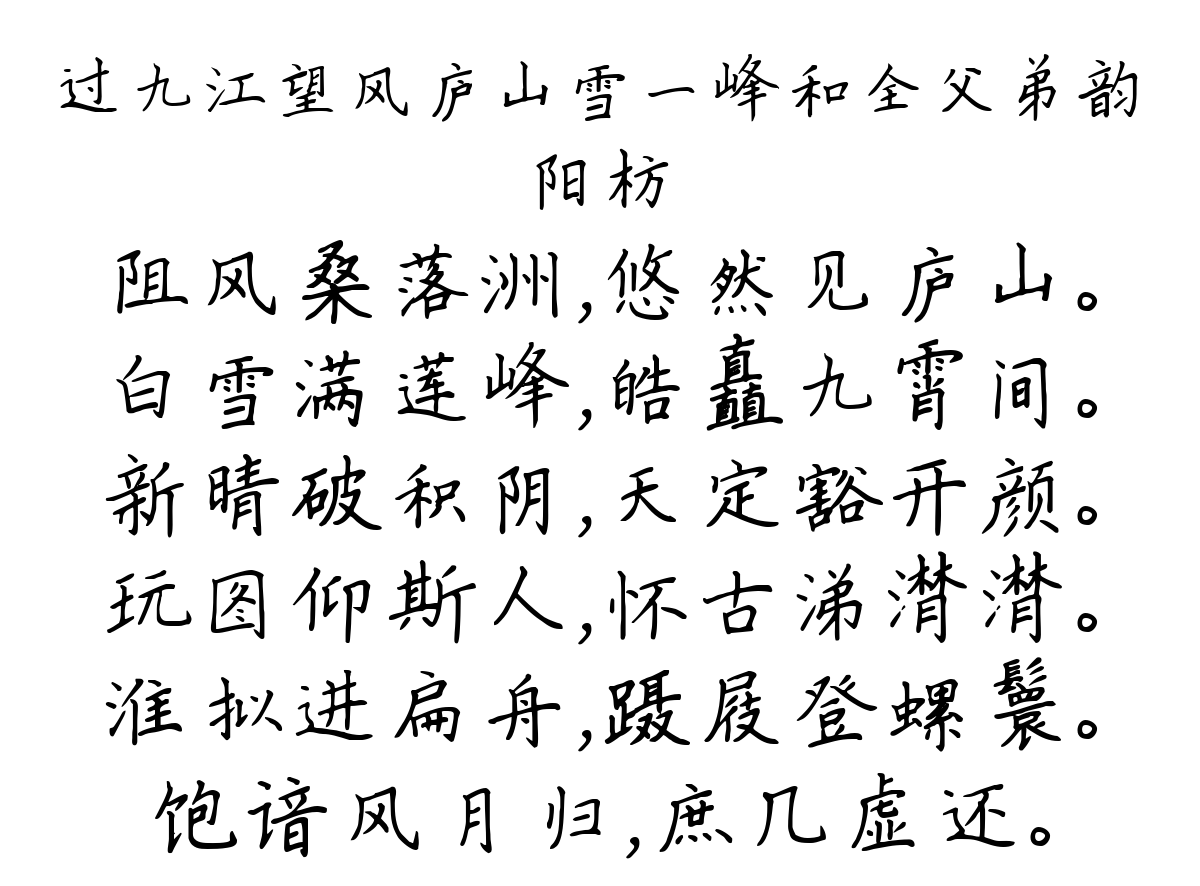 过九江望风庐山雪一峰和全父弟韵
阳枋
阻风桑落洲,悠然见庐山。
白雪满莲峰,皓矗九霄间。
新晴破积阴,天定豁开颜。
玩图仰斯人,怀古涕潸潸。
准拟进扁舟,蹑屐登螺鬟。
饱谙风月归,庶几虚还。